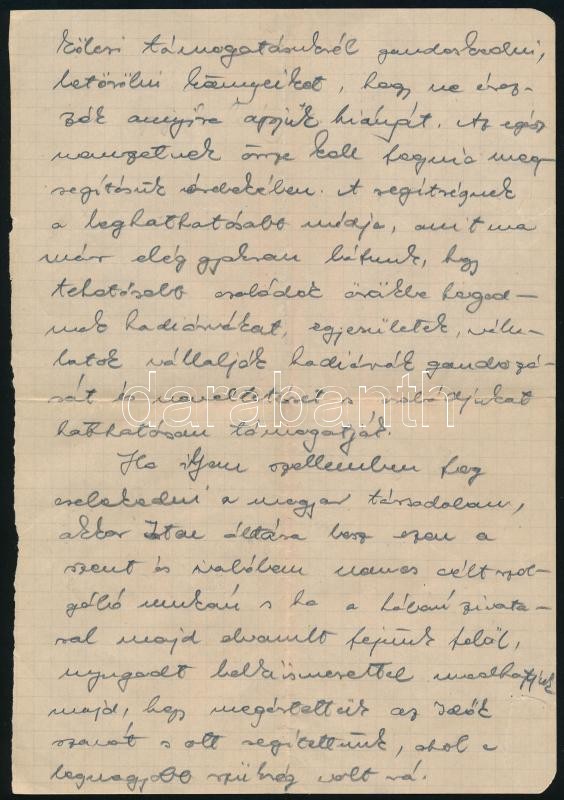 kölcsi támogatásukról gondoskodni,
letörölni könnyeiket, hogy ne érez-
zék annyira apjuk hiányát. Az egész
nemzetnek össze kell fognia meg
segítésük érdekében. A segítségnek
a leghathatósabb módja, amit ma
már elég gyakran látunk, hogy
tehetősebb családok örökbe fogad-
nak hadiárvákat, egyesületek, válla-
latok vállalják hadiárvák gondozá-
sát és neveltetését s családjukat
hathatósan támogatják.
Ha ilyen szellemben fog
cselekedni a magyar társadalom,
akkor Isten áldása lesz ezen a
szent és valóban nemes célt szol-
gáló munkán s ha a háború zivata-
ral majd elvonult fejünk felől,
nyugodt lelkiismerettel mondhatjuk
majd, hogy megértettük az Idők
szavát s ott segítettünk, ahol a
legnagyobb szükség volt rá.
darabanth